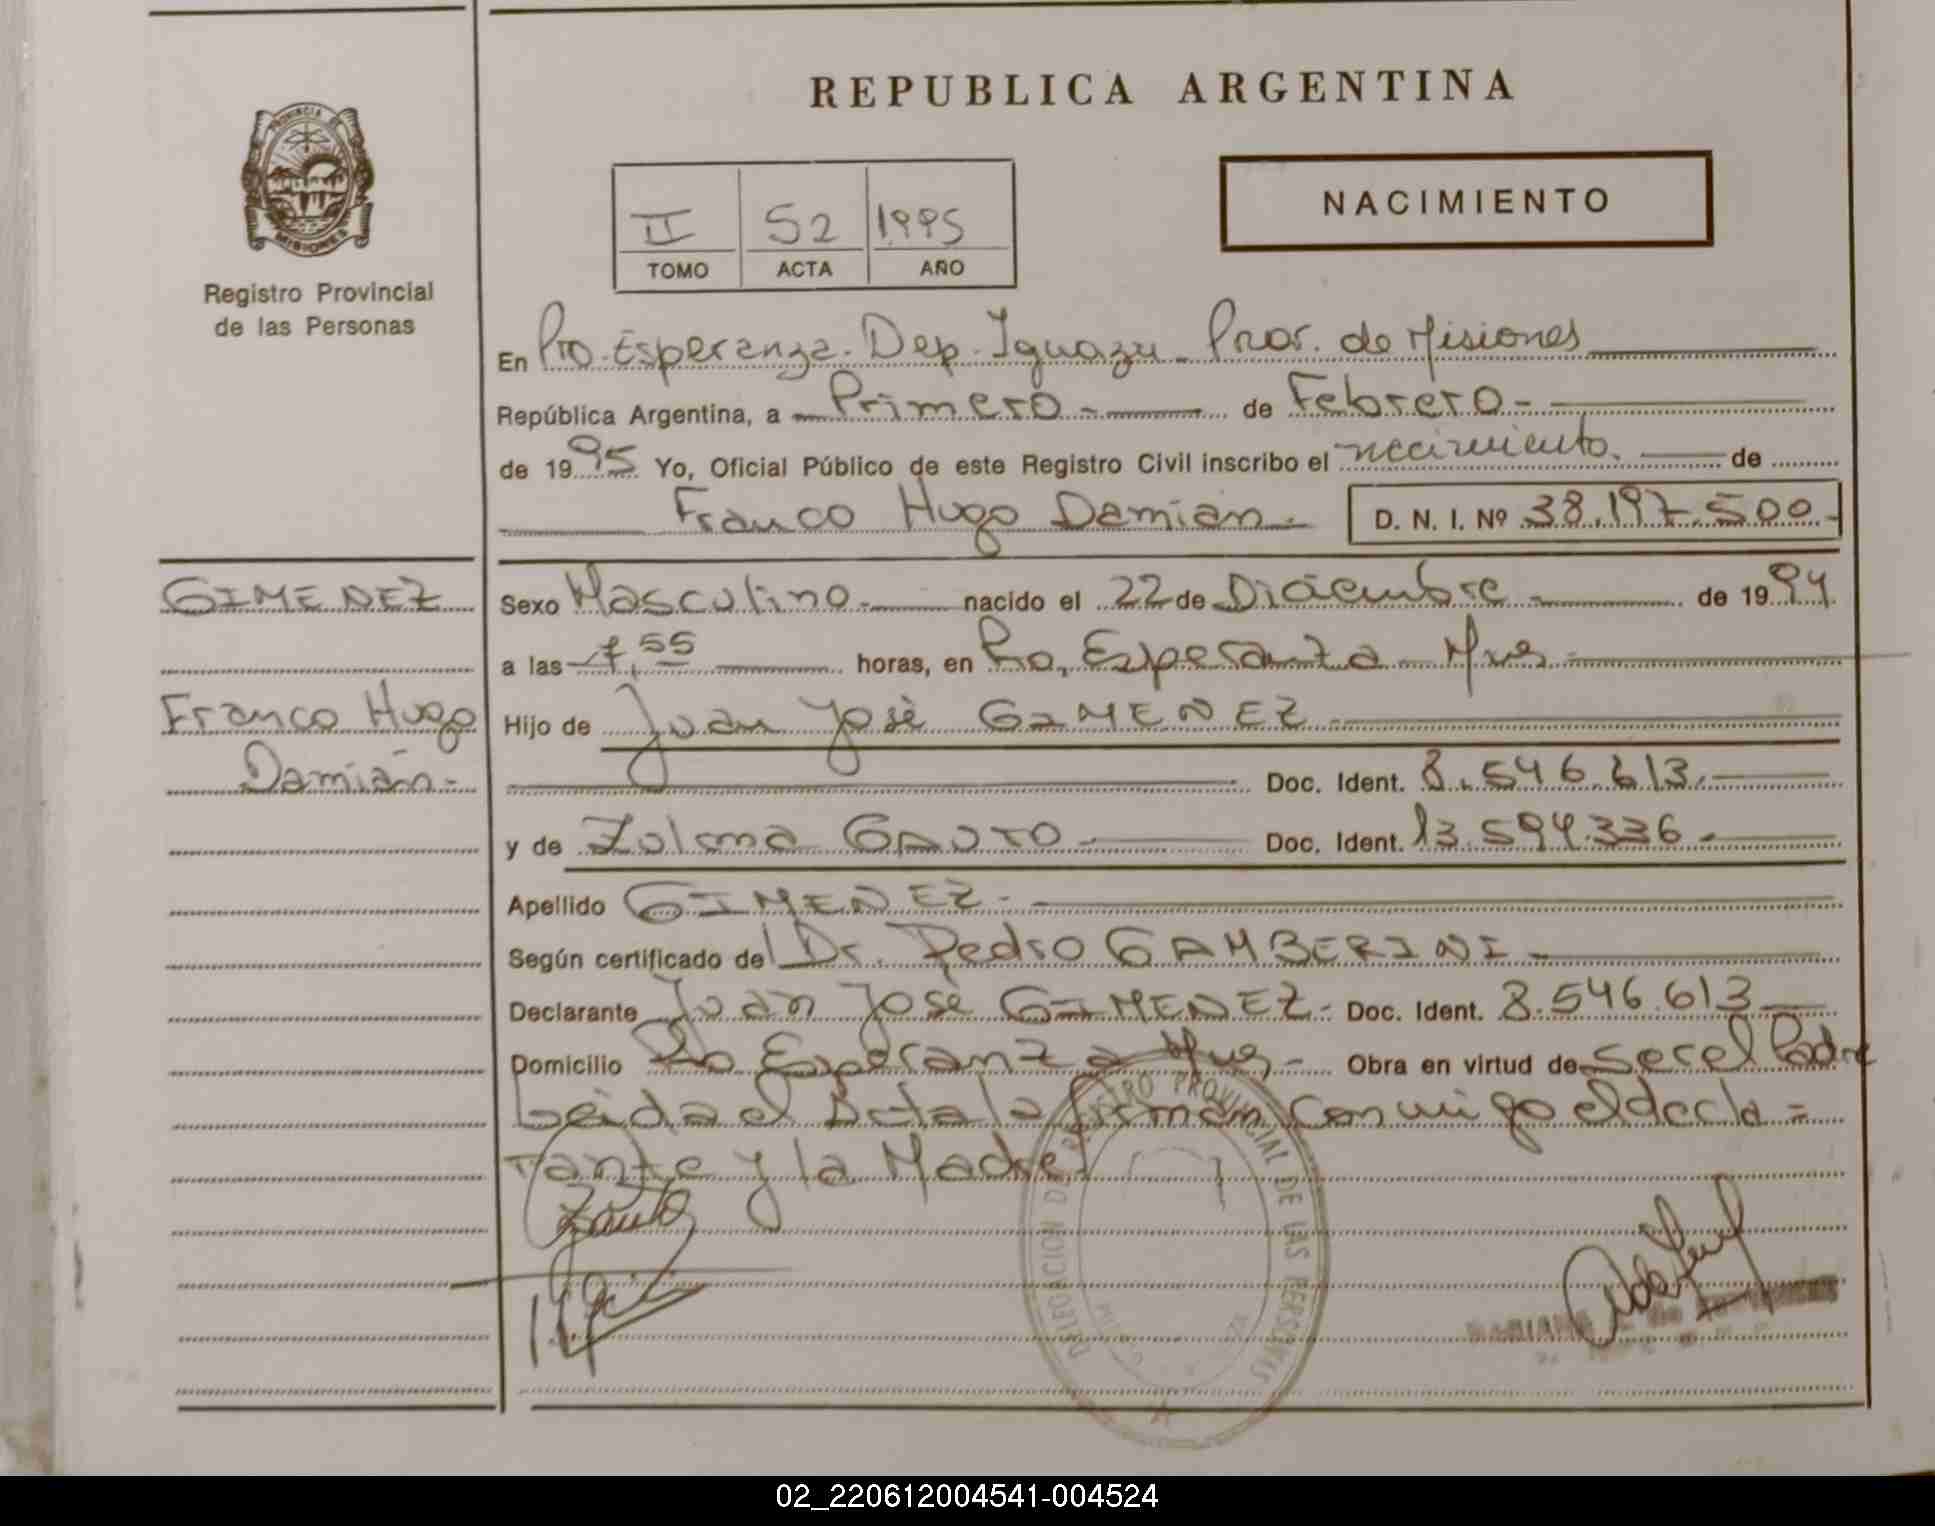 REPUBLICA ARGENTINA
PROVINCIA DE
MISIONES
Registro Provincial
de las Personas
NACIMIENTO
II 52 1995
TOMO ACTA AÑO
En Pto. Esperanza. Dep. Iguazu Prov. de Misiones
República Argentina, a Primero - de Febrero -
de 1995 Yo, Oficial Público de este Registro Civil inscribo el nacimiento. de
Franco Hugo Damian. D. N. I. Nº 38.197.500.-
GIMENEZ
Franco Hugo
Damián.-
Sexo Masculino.- nacido el 22 de Diciembre - de 1994
a las 7,55 horas, en Pto. Esperanza Mnes -
Hijo de Juan José GIMENEZ -
Doc. Ident. 8.546.613.
y de Zulma GAUTO - Doc. Ident. 13.594.336 -
Apellido GIMENEZ -
Según certificado de Dr. Pedro GAMBERINI -
Declarante Juan José GIMENEZ - Doc. Ident. 8.546.613
Domicilio Pto Esperanza Mnes - Obra en virtud de ser el Padre
Leida el Acta la firman conmigo el decla =
rante y la Madre
DELEGACION DEL REGISTRO PROVINCIAL DE LAS PERSONAS
02_220612004541-004524